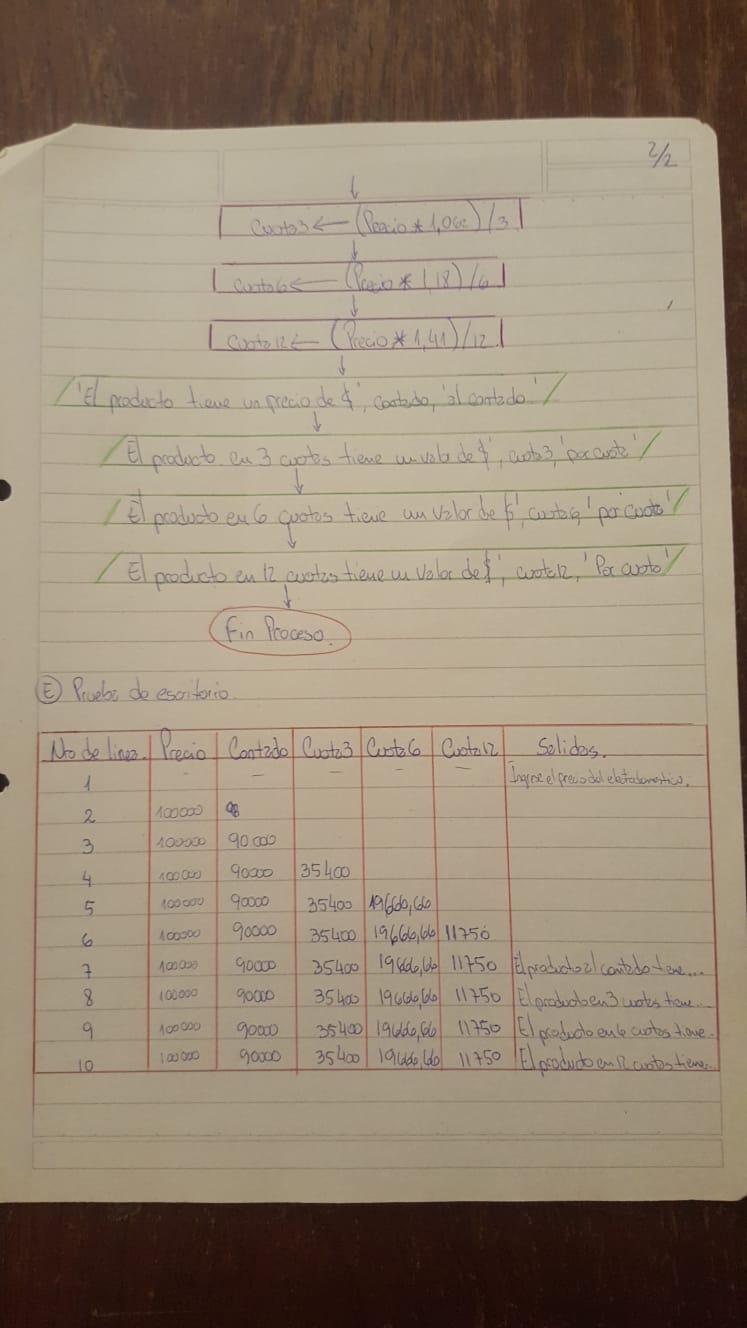 2/2
Cuota3 ← (Precio * 1,062) / 3
Cuota6 ← (Precio * 1,18) / 6
Cuota12 ← (Precio * 1,41) / 12
'El producto tiene un precio de $', contado, 'al contado'
'El producto en 3 cuotas tiene un valor de $', cuota3, 'por cuota'
'El producto en 6 cuotas tiene un valor de $', cuota6, 'por cuota'
El producto en 12 cuotas tiene un valor de $', cuota12, 'Por cuota'
Fin Proceso.
E Prueba de escritorio.
No de linea. Precio Contado Cuota3 Cuota6 Cuota12 Salidas.
1 - - - - - Ingrese el precio del electrodomestico.
2 100000
3 100000 90000
4 100000 90000 35400
5 100000 90000 35400 19666,66
6 100000 90000 35400 19666,66 11750
7 100000 90000 35400 19666,66 11750 El producto al contado tiene...
8 100000 90000 35400 19666,66 11750 El producto en 3 cuotas tiene...
9 100000 90000 35400 19666,66 11750 El producto en 6 cuotas tiene..
10 100000 90000 35400 19666,66 11750 El producto en 12 cuotas tiene...